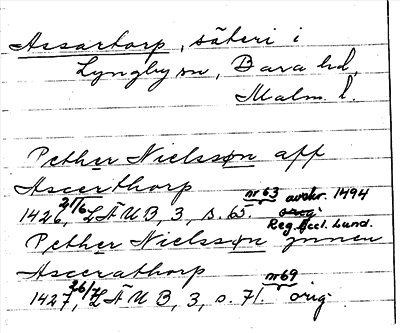 Assartorp, säteri i
Lyngby sn, Bara hd,
Malm. l.
Pether Nielsson aff
Ascerthorp
1426 21/6, LÄUB, 3, s. 65. nr 63 avskr. 1494
orig.
Reg. Eccl. Lund.
Pether Nielsson
Ascerathorp
1427 26/7, LÄUB, 3, s. 71. nr 69 orig.